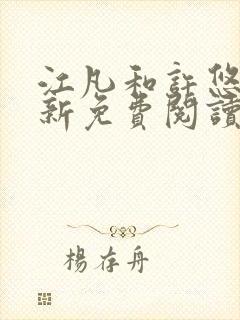 江凡和許悠
新免費閱讀
楊存舟